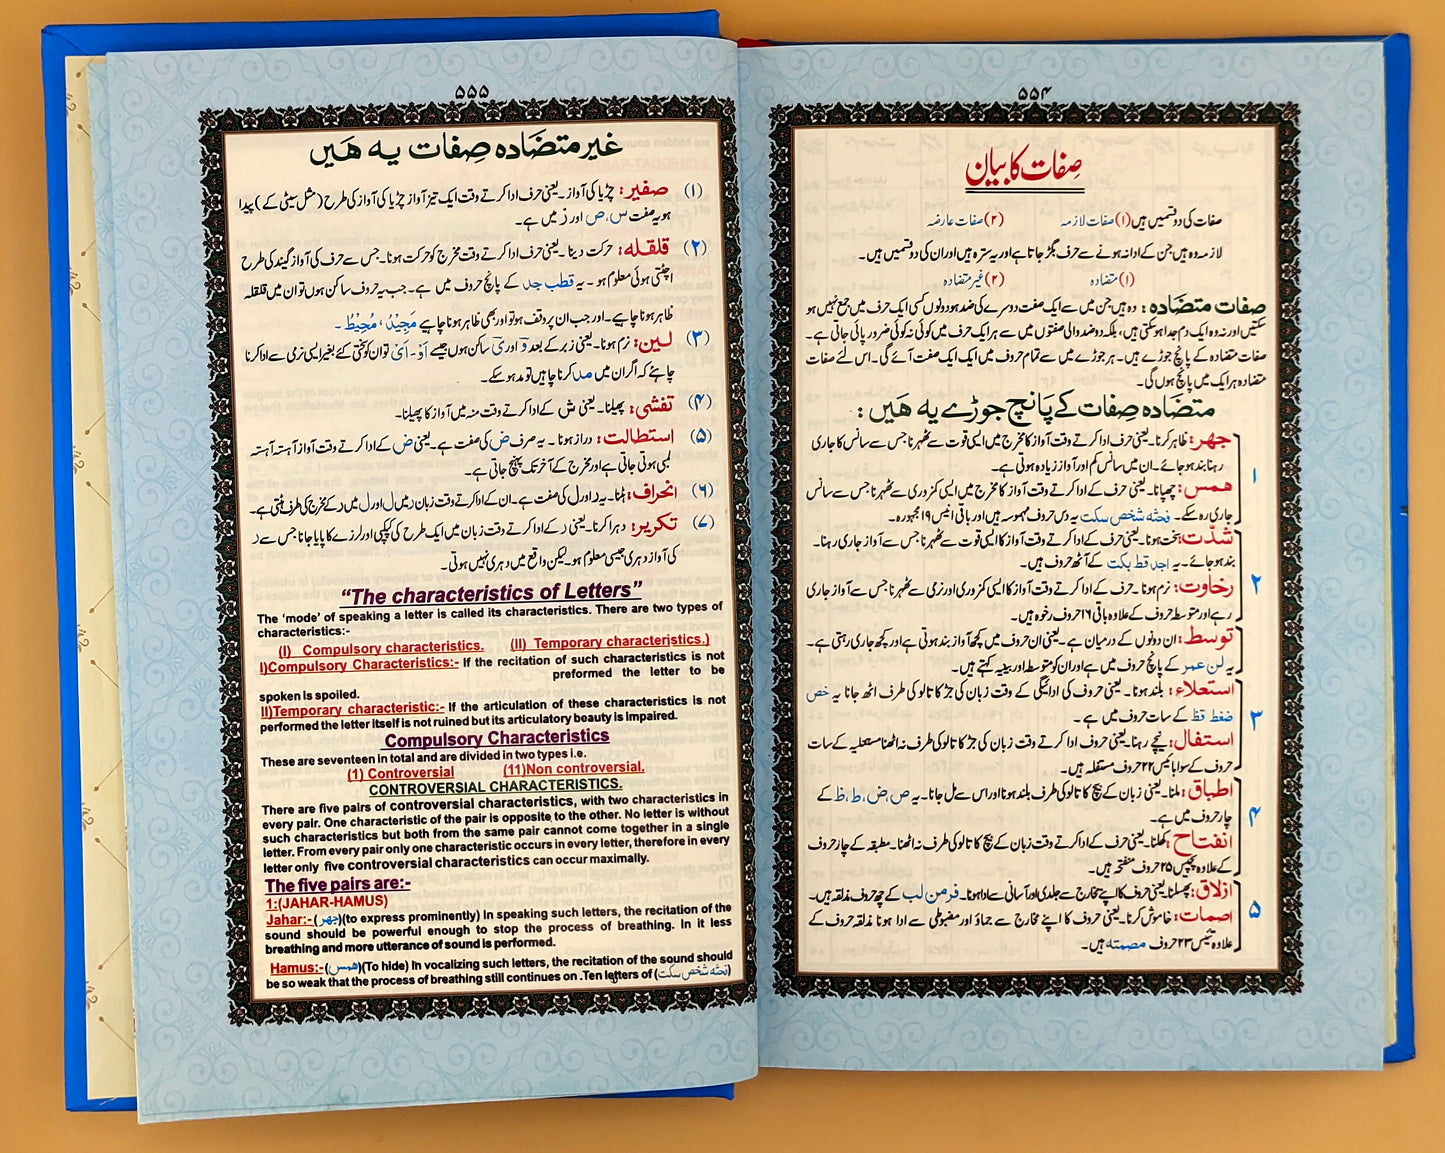 ۵۵۴
صِفات کا بیان
صفات کی دو قسمیں ہیں (۱) صفات لازمہ (۲) صفات عارضہ
لازمہ وہ ہیں جن کے ادا نہ ہونے سے حرف بگڑ جاتا ہے اور یہ سترہ ہیں اور ان کی دو قسمیں ہیں۔
(۱) متضادہ (۲) غیر متضادہ
صفات متضَادہ : وہ ہیں جن میں سے ایک صفت دوسرے کی ضد ہو دونوں کسی ایک حرف میں جمع نہیں ہو
سکتیں اور نہ وہ ایک دم جدا ہو سکتی ہیں، بلکہ دو ضد والی صفتوں میں سے ہر ایک حرف میں کوئی نہ کوئی ضرور پائی جاتی ہے۔
صفات متضادہ کے پانچ جوڑے ہیں۔ ہر جوڑے میں سے تمام حروف میں ایک ایک صفت آئے گی۔ اس لئے صفات
متضادہ ہر ایک میں پانچ ہوں گی۔
متضَادہ صِفات کے پَانچ جوڑے یہ هَیں :
جهر: ظاہر کرنا۔ یعنی حرف ادا کرتے وقت آواز کا مخرج میں ایسی قوت سے ٹھہرنا جس سے سانس کا جاری
رہنا بند ہو جائے۔ ان میں سانس کم اور آواز زیادہ ہوتی ہے۔
۱
همس: چھپانا۔ یعنی حرف کے ادا کرتے وقت آواز کا مخرج میں ایسی کمزوری سے ٹھہرنا جس سے سانس
جاری رہ سکے۔ فحثه شخص سكت یہ دس حروف مہموسہ ہیں اور باقی انیس ۱۹ مجہورہ۔
شدّت: سخت ہونا۔ یعنی حرف کے ادا کرتے وقت آواز کا ایسی قوت سے ٹھہرنا جس سے آواز جاری رہنا۔
بند ہو جائے۔ یہ اجد قط بکت کے آٹھ حروف ہیں۔
۲
رخاوت: نرم ہونا۔ حرف کے ادا کرتے وقت آواز کا ایسی کمزوری اور نرمی سے ٹھہرنا جس سے آواز جاری
رہے اور متوسطہ حروف کے علاوہ باقی ۱۶ حروف رخوہ ہیں۔
توسط: ان دونوں کے درمیان ہے۔ یعنی ان حروف میں کچھ آواز بند ہوتی ہے اور کچھ جاری رہتی ہے۔
یہ لن عمر کے پانچ حروف میں ہے اور ان کو متوسطہ اور بینیہ کہتے ہیں۔
استعلاء: بلند ہونا۔ یعنی حروف کی ادائیگی کے وقت زبان کی جڑ کا تالو کی طرف اٹھ جانا یہ خص
ضغط قظ کے سات حروف میں ہے۔
۳
استفال: نیچے رہنا۔ یعنی حروف ادا کرتے وقت زبان کی جڑ کا تالو کی طرف نہ اٹھنا مستعلیہ کے سات
حروف کے سوا بائیس ۲۲ حروف مستفلہ ہیں۔
اطباق: ملنا۔ یعنی زبان کے بیچ کا تالو کی طرف بلند ہونا اور اس سے مل جانا۔ یہ ص، ض، ط، ظ کے
چار حروف میں ہے۔
۴
انفتاح: کھلنا۔ یعنی حرف کے ادا کرتے وقت زبان کے بیچ کا تالو کی طرف نہ اٹھنا۔ مطبقہ کے چار حروف
کے علاوہ پچیس ۲۵ حروف منفتحہ ہیں۔
۵
ازلاق: پھسلنا۔ یعنی حروف کا اپنے مخارج سے جلدی اور آسانی سے ادا ہونا۔ فرمن لب کے چھ حروف مذلقہ ہیں۔
اصمات: خاموش کرنا۔ یعنی حروف کا اپنے مخارج سے جماؤ اور مضبوطی سے ادا ہونا مذلقہ حروف کے
علاوہ تئیس ۲۳ حروف مصمتہ ہیں۔
۵۵۵
غیر متضَادہ صِفات یہ هَیں
(۱) صفیر: چڑیا کی آواز۔ یعنی حرف ادا کرتے وقت ایک تیز آواز چڑیا کی آواز کی طرح (مثل سیٹی کے) پیدا
ہو یہ صفت س، ص اور ز میں ہے۔
(۲) قلقله: حرکت دینا۔ یعنی حرف ادا کرتے وقت مخرج کو حرکت ہونا۔ جس سے حرف کی آواز گیند کی طرح
اچھلتی ہوئی معلوم ہو۔ یہ قطب جد کے پانچ حروف میں ہے۔ جب یہ حروف ساکن ہوں تو ان میں قلقلہ
ظاہر ہونا چاہیے۔ اور جب ان پر وقف ہو تو اور بھی ظاہر ہونا چاہیے مَجِيْدُ، مُحِيْطُ۔
(۳) لین: نرم ہونا۔ یعنی زبر کے بعد و اور ی ساکن ہوں جیسے اَوْ۔ اَىْ تو ان کو سختی کئے بغیر ایسی نرمی سے ادا کرنا
چاہئے کہ اگر ان میں مد کرنا چاہیں تو مد ہو سکے۔
(۴) تفشی: پھیلنا۔ یعنی ش کے ادا کرتے وقت منہ میں آواز کا پھیلنا۔
(۵) استطالت: دراز ہونا۔ یہ صرف ض کی صفت ہے۔ یعنی ض کے ادا کرتے وقت آواز آہستہ آہستہ
لمبی ہوتی جاتی ہے اور مخرج کے آخر تک پہنچ جاتی ہے۔
(۶) انحراف: ہٹنا۔ یہ ر اور ل کی صفت ہے۔ ان کے ادا کرتے وقت زبان ر میں ل اور ل میں ر کے مخرج کی طرف ہٹتی ہے۔
(۷) تکریر: دہرا کرنا۔ یعنی ر کے ادا کرتے وقت زبان میں ایک طرح کی کپکپی اور لرزے کا پایا جانا جس سے ر
کی آواز دہری جیسی معلوم ہو۔ لیکن واقع میں دہری نہیں ہوتی۔
“The characteristics of Letters”
The ‘mode’ of speaking a letter is called its characteristics. There are two types of
characteristics:-
(I) Compulsory characteristics. (II) Temporary characteristics.)
I)Compulsory Characteristics:- If the recitation of such characteristics is not
preformed the letter to be
spoken is spoiled.
II)Temporary characteristic:- If the articulation of these characteristics is not
performed the letter itself is not ruined but its articulatory beauty is impaired.
Compulsory Characteristics
These are seventeen in total and are divided in two types i.e.
(1) Controversial (11)Non controversial.
CONTROVERSIAL CHARACTERISTICS.
There are five pairs of controversial characteristics, with two characteristics in
every pair. One characteristic of the pair is opposite to the other. No letter is without
such characteristics but both from the same pair cannot come together in a single
letter. From every pair only one characteristic occurs in every letter, therefore in every
letter only five controversial characteristics can occur maximally.
The five pairs are:-
1:(JAHAR-HAMUS)
Jahar:- (جهر)(to express prominently) In speaking such letters, the recitation of the
sound should be powerful enough to stop the process of breathing. In it less
breathing and more utterance of sound is performed.
Hamus:-(همس)(To hide) In vocalizing such letters, the recitation of the sound should
be so weak that the process of breathing still continues on .Ten letters of (فحثه شخص سکت)